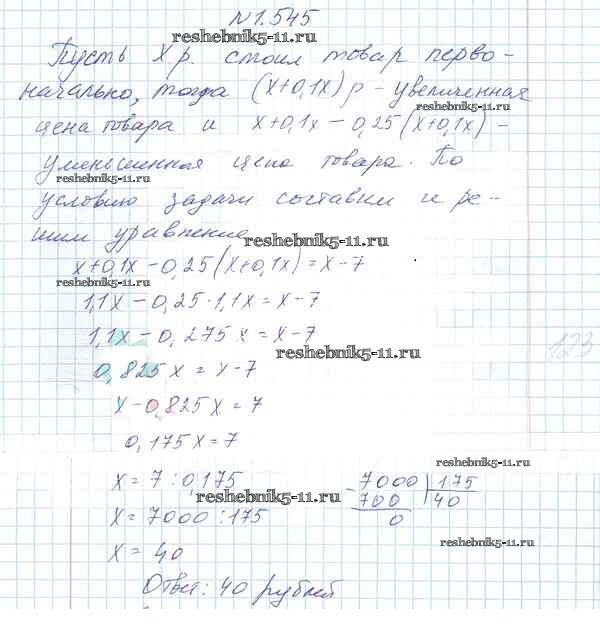 №1.545
reshebnik5-11.ru
Пусть X р. стоил товар перво-
начально, тогда (x+0,1x) р - увеличенная
reshebnik5-11.ru
цена товара и x+0,1x-0,25(x+0,1x) -
уменьшенная цена товара. По
reshebnik5-11.ru
условию задачи составим и ре-
шим уравнение
reshebnik5-11.ru
x+0,1x-0,25(x+0,1x)=x-7
reshebnik5-11.ru
1,1x-0,25·1,1x=x-7
1,1x-0,275x=x-7
reshebnik5-11.ru
123
0,825x=x-7
x-0,825x=7
0,175x=7
reshebnik5-11.ru
x=7:0,175
7000 | 175
reshebnik5-11.ru
700 40
x=7000:175
0
reshebnik5-11.ru
x=40
Ответ: 40 рублей